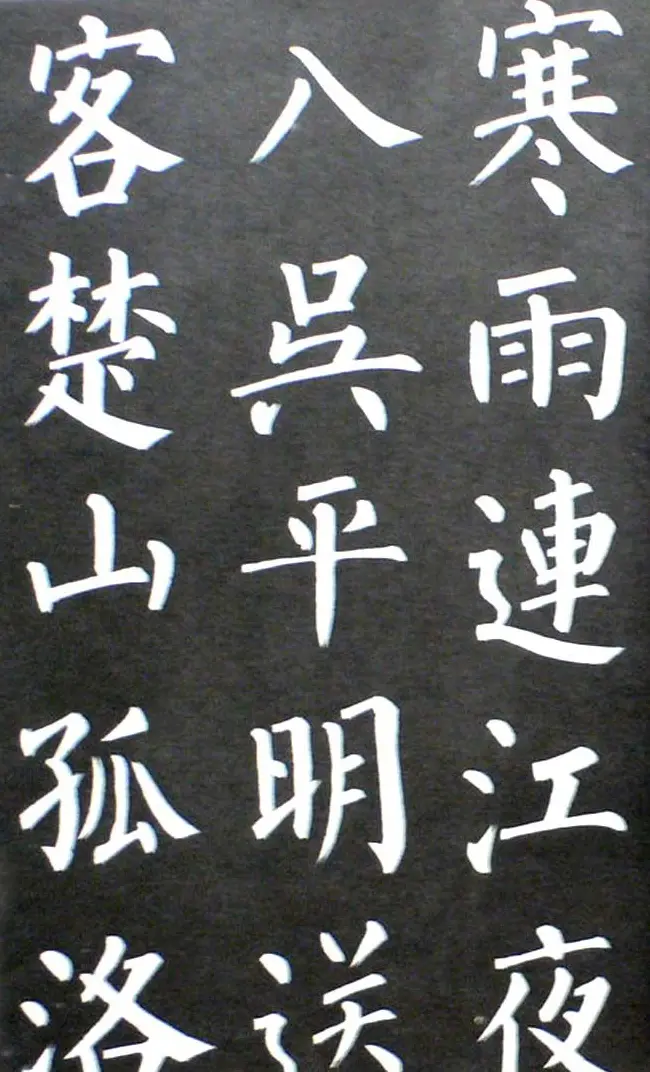 寒雨連江夜
入呉平明送
客楚山孤洛